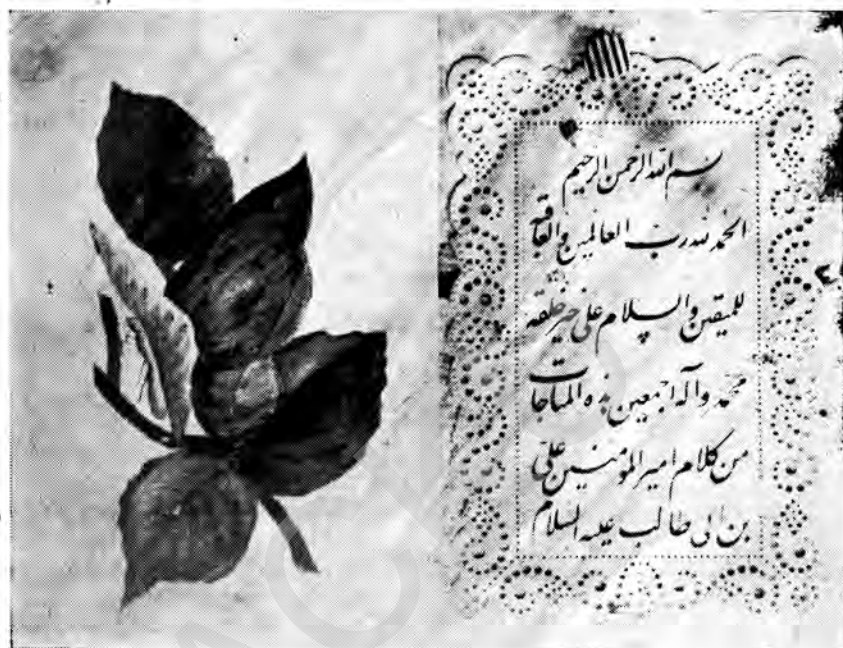 بسم الله الرحمن الرحيم
الحمد لله رب العالمين والعاقبة
للمتقين والسلام على خير خلقه
محمد وآله اجمعين هذه المناجات
من كلام امير المومنين على
بن ابى طالب عليه السلام